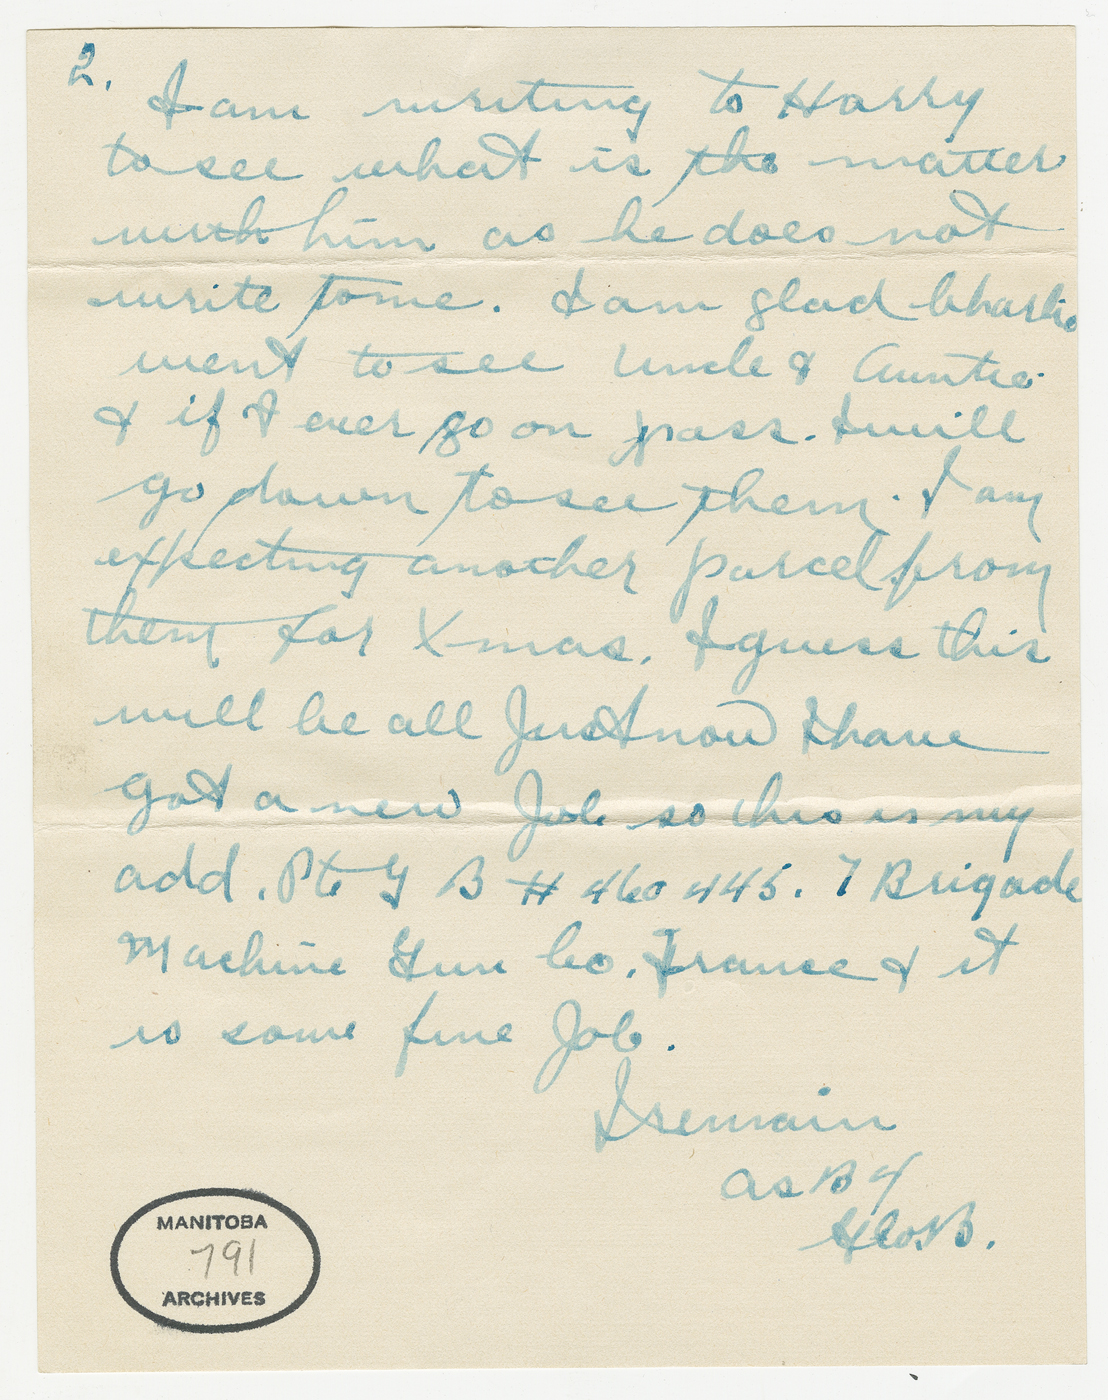 2.
I am writing to Harry
to see what is the matter
with him as he does not
write to me. I am glad Charlie
went to see Uncle & Auntie.
& if I ever go on pass. I will
go down to see them. I am
expecting another parcel from
them for X-mas. I guess this
will be all Just now I have
got a new Job so this is my
add. Pte G B # 460445. 7 Brigade
Machine Gun Co. France & it
is some fine Job.
I remain
as B 4
Geo. B.
MANITOBA
791
ARCHIVES